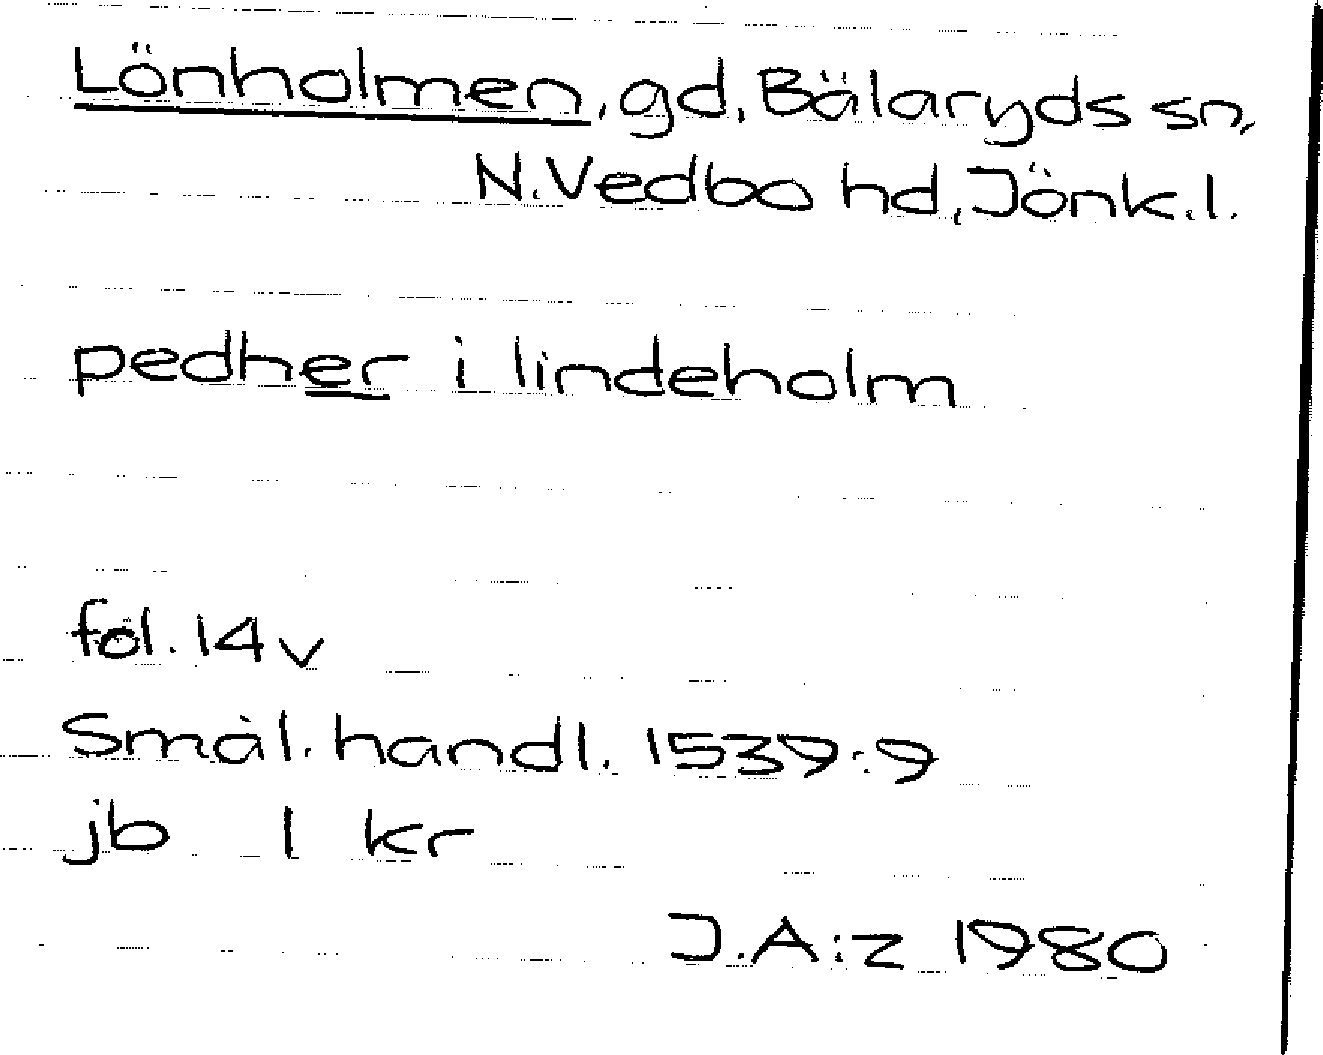 Lönholmen, gd, Bälaryds sn,
N. Vedbo hd, Jönk. l.
pedher i lindeholm
fol. 14 v
Smål. handl. 1539:9
jb 1 kr
J.A:z 1980